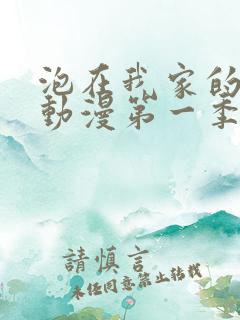 泡在我家的
動漫第一季
請慎言
未任同意禁止轉載